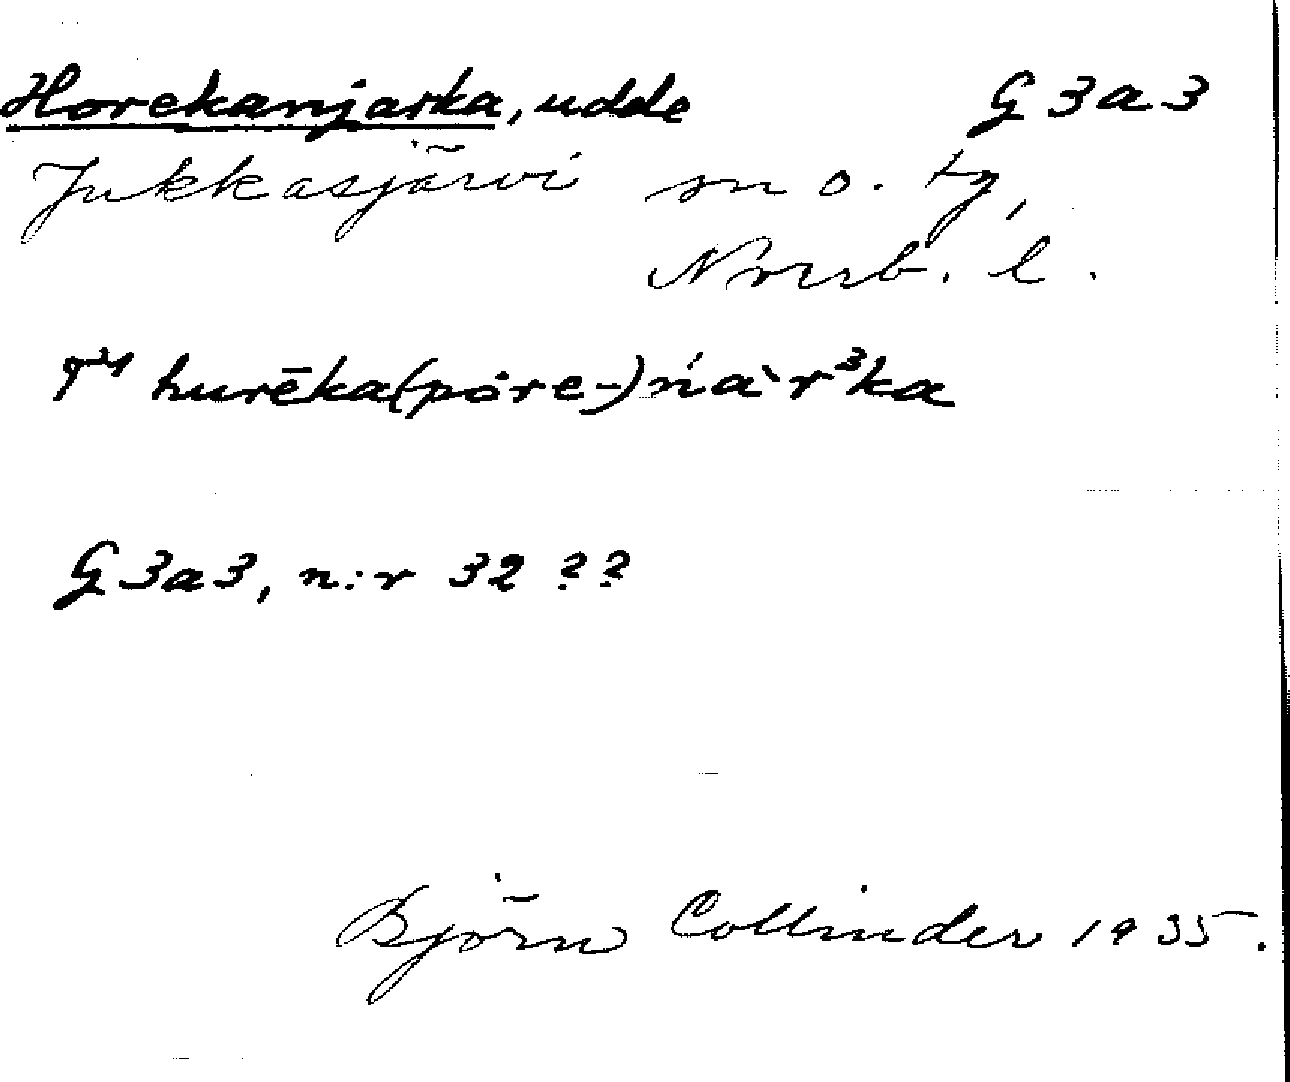 Horekanjarka, udde G 3 a 3
Jukkasjärvi sn o. tg,
Norrb. l.
hurēka(pȯre-)ńàrᶾka
G 3 a 3, n:r 32 ??
Björn Collinder 1935.